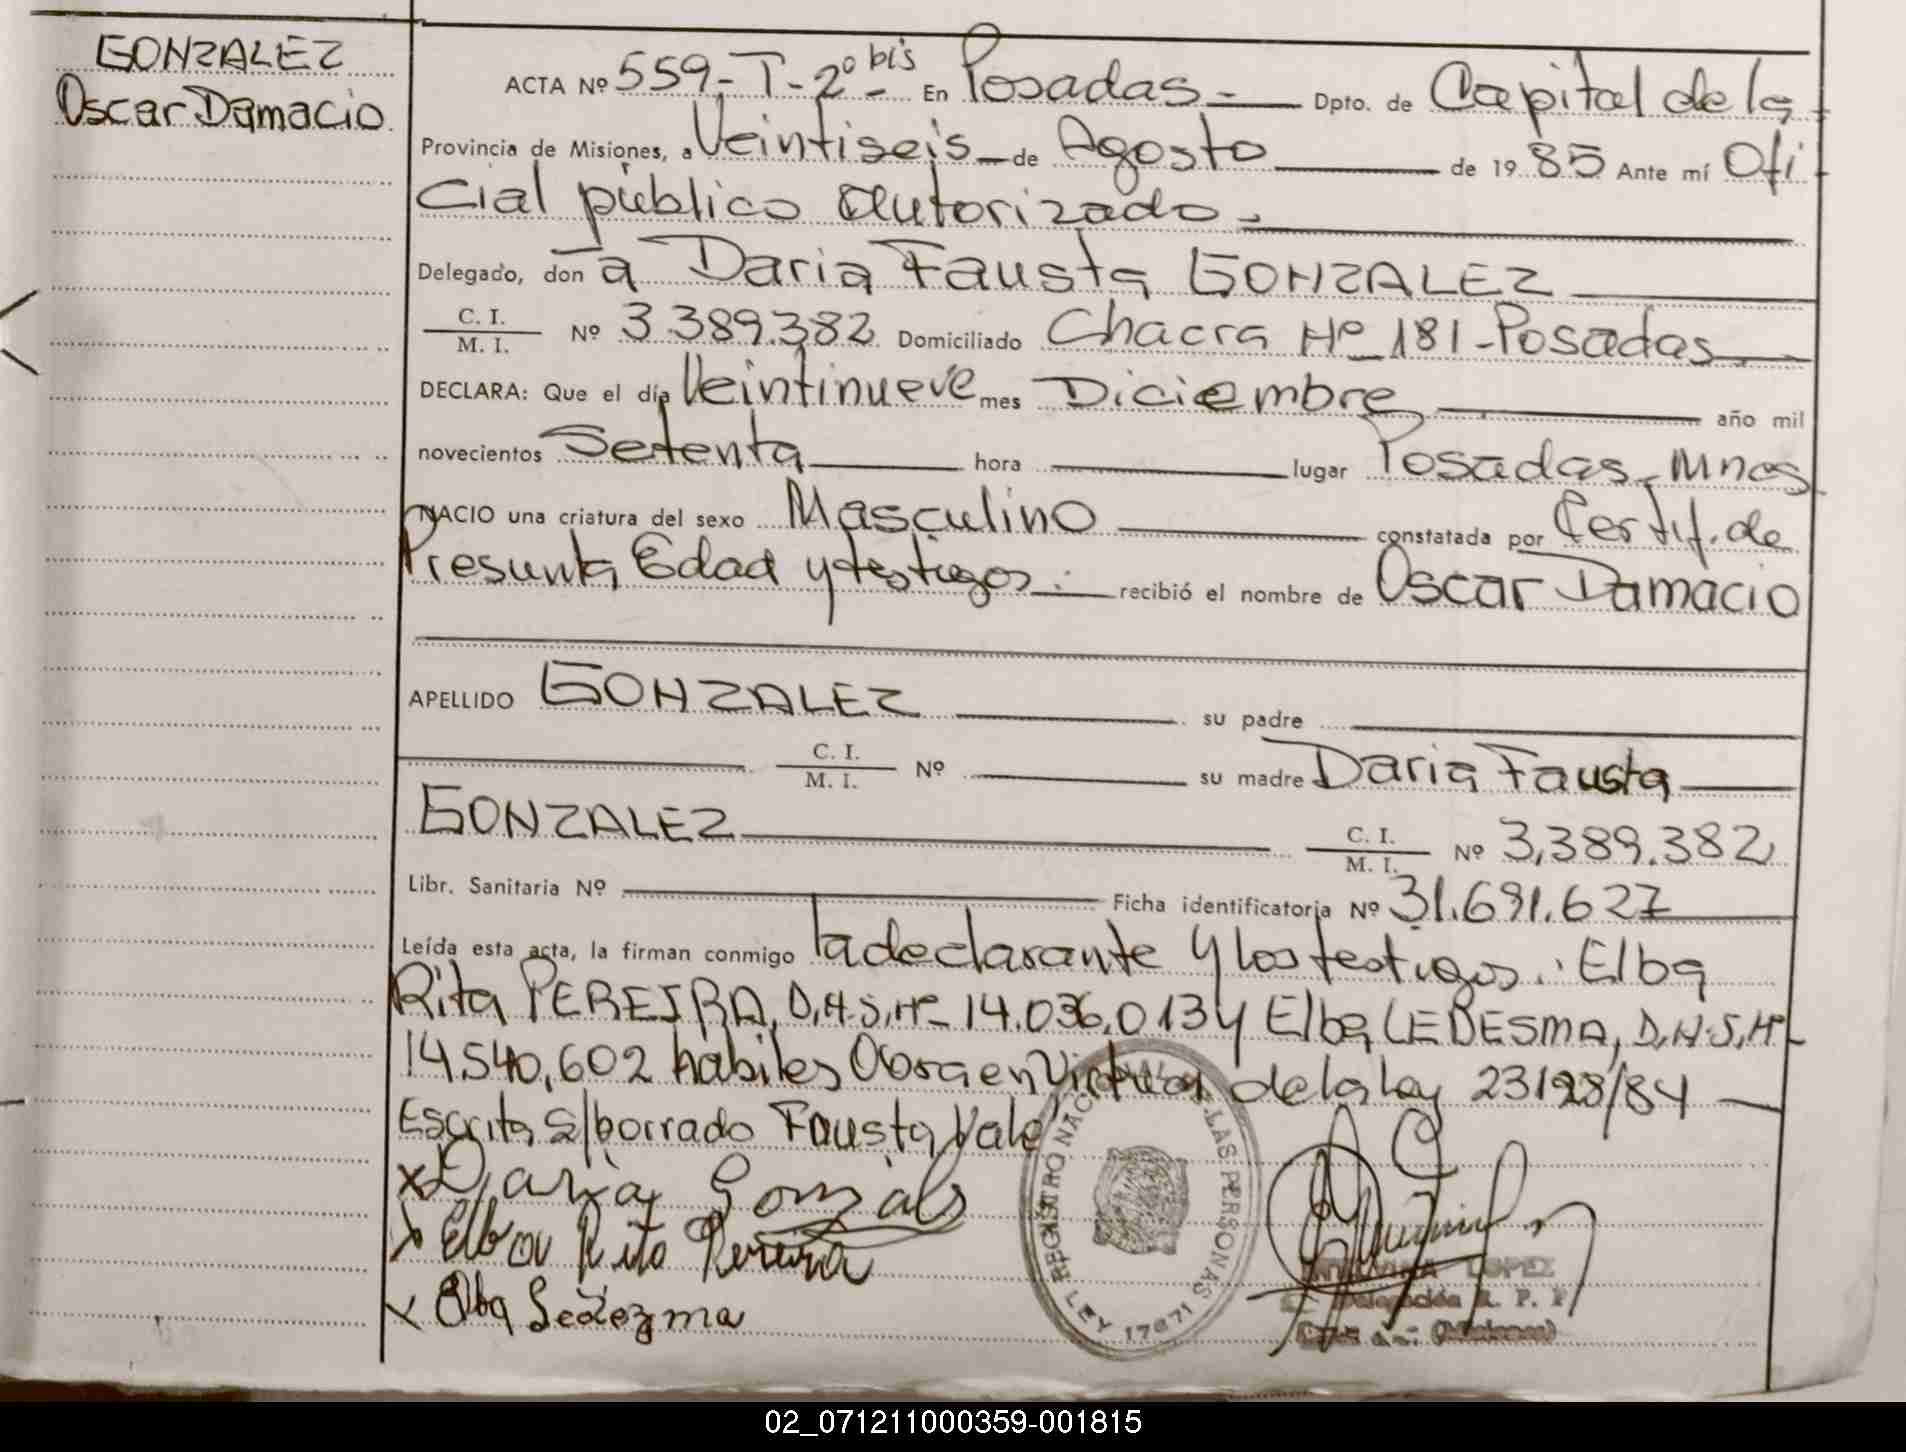 GONZALEZ
Oscar Damacio
ACTA Nº 559-T-2º bis En Posadas.- Dpto. de Capital de la
Provincia de Misiones, a Veintiseis de Agosto de 1985 Ante mí Ofi
cial público autorizado.-
Delegado, don a Daria Fausta GONZALEZ
C. I.
M. I. Nº 3.389.382 Domiciliado Chacra Nº 181-Posadas
DECLARA: Que el día Veintinueve mes Diciembre año mil
novecientos Setenta hora lugar Posadas-Mnes
NACIO una criatura del sexo Masculino constatada por Certif. de
Presunta Edad y testigos.- recibió el nombre de Oscar Damacio
APELLIDO GONZALEZ su padre
C. I.
M. I. Nº su madre Daria Fausta
GONZALEZ C. I.
M. I. Nº 3,389.382
Libr. Sanitaria Nº Ficha identificatoria Nº 31.691.627
Leída esta acta, la firman conmigo la declarante y los testigos.: Elba
Rita PEREIRA, D,N.S,Nº 14.036.013 y Elba LEDESMA, D,N.S,Nº
14.540,602 habiles Obra en Virtud de la ley 23128/84
Escrita s/borrado Fausta Vale
x Daria Gonzals
x Elba Rita Pereira
x Elba Ledezma
REGISTRO NACIONAL DE LAS PERSONAS
LEY 17671
LOPEZ
Delegación R. P.
(Misiones)
02_071211000359-001815